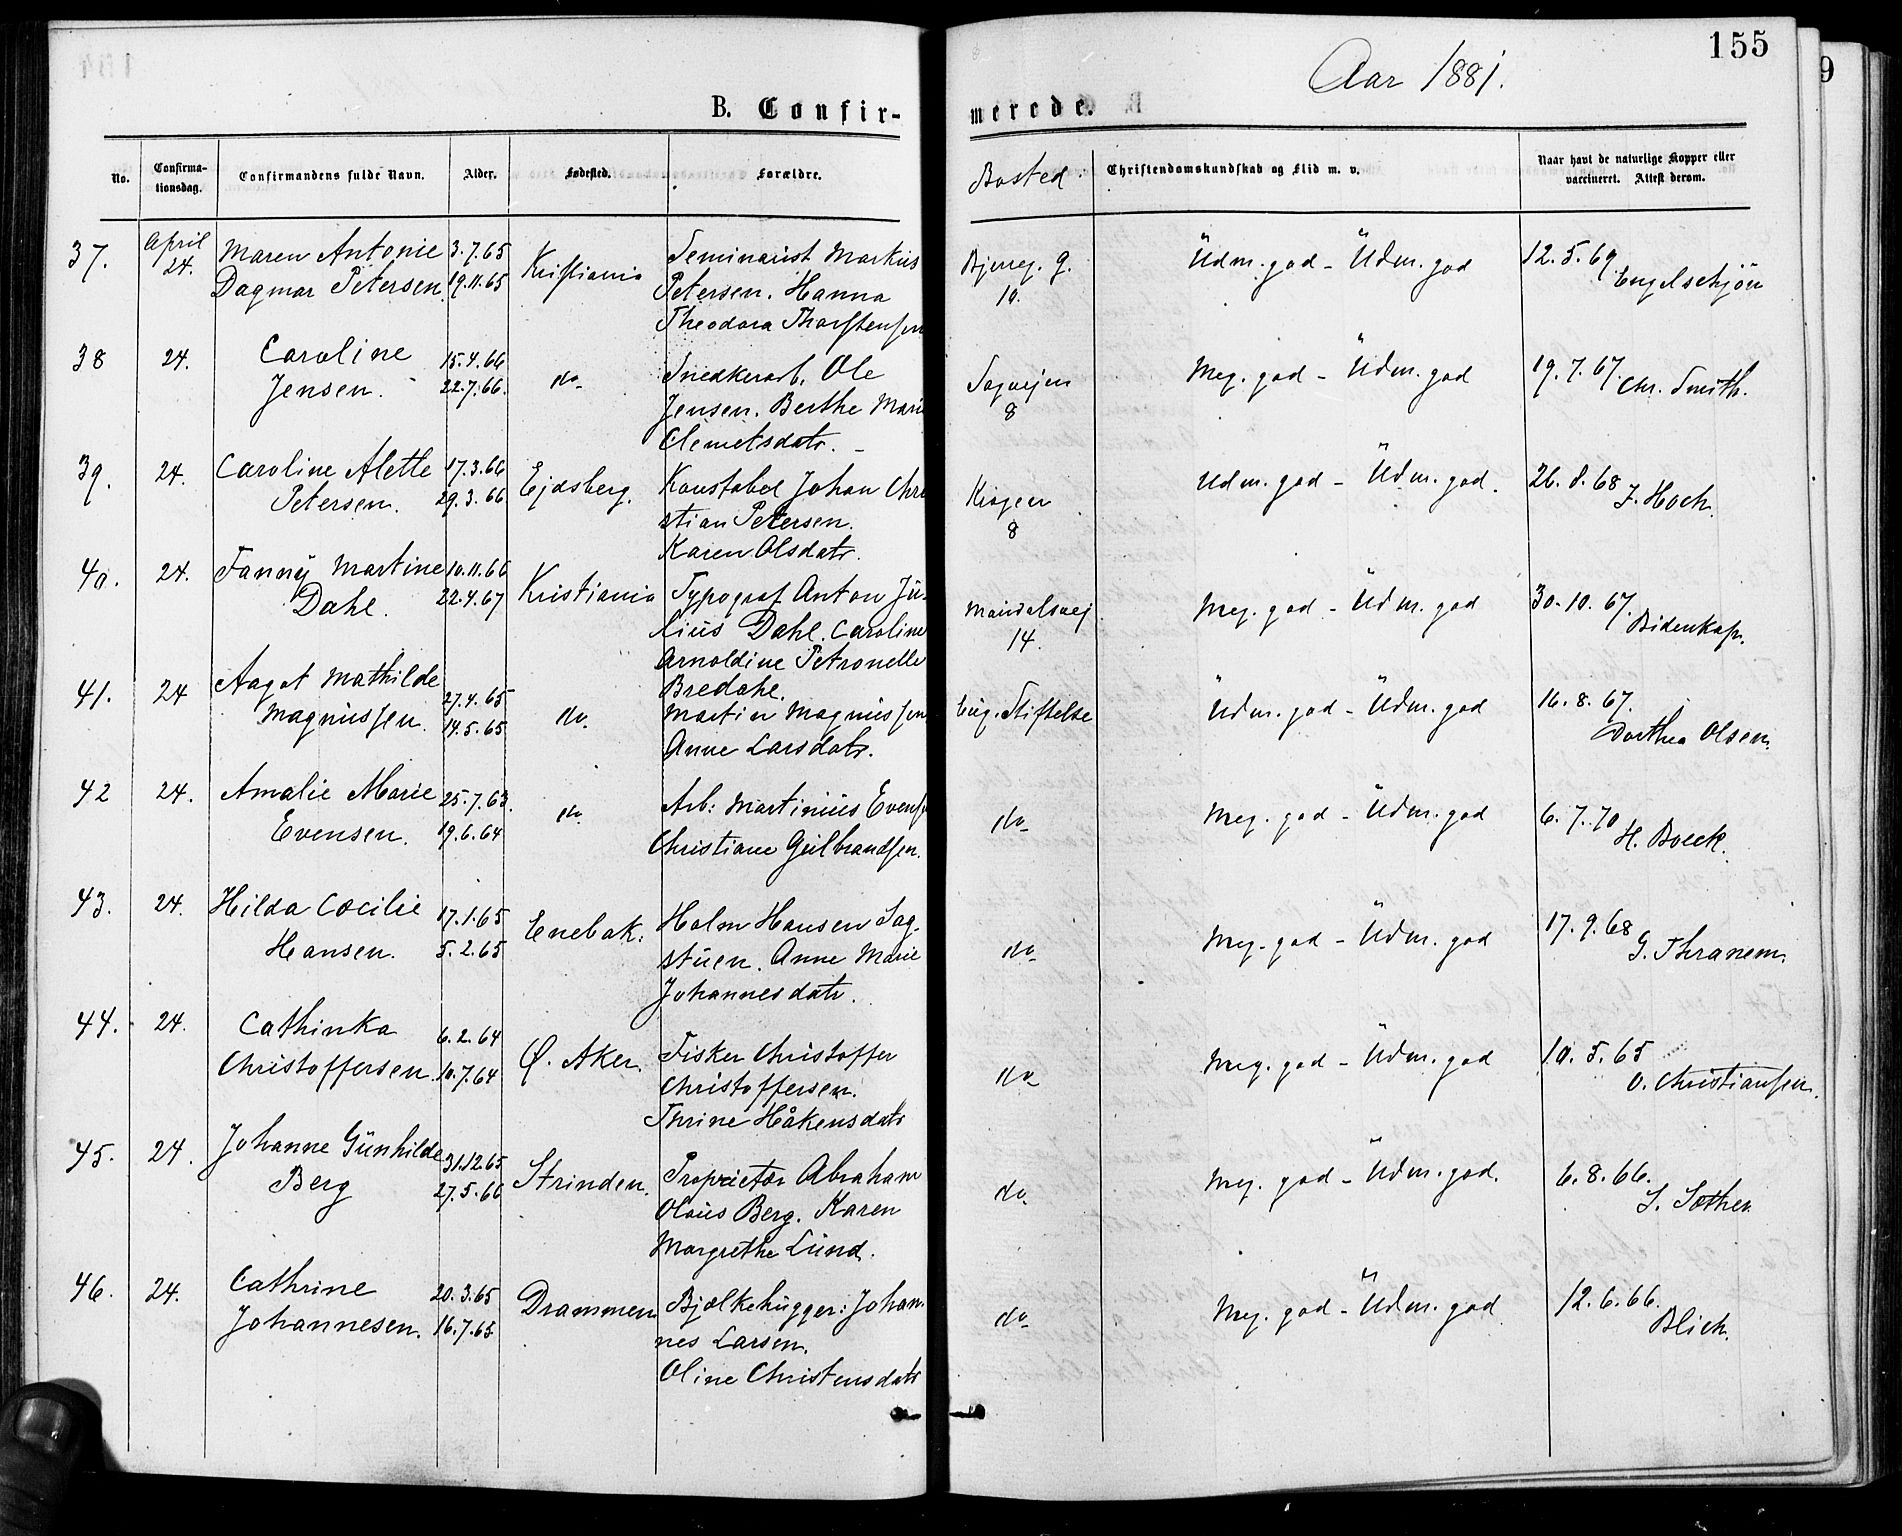 155
9
Aar 1881.
B. Confir- merede.
No.
Confirma-
tionsdag.
Confirmandens fulde Navn.
Alder.
Fødested.
Forældre.
Bosted
Christendomskundskab og Flid m. v.
Naar havt de naturlige Kopper eller
vaccineret. Attest derom.
37. April 24. Maren Antonie 3.7.65 Kristiania Seminarist Markus
Dagmar Petersen 19.11.65 Petersen. Hanna
Theodora Thorstensen
10. Üdm. god - Üdm. god 12.5.69 Engelschjøn
38 24. Caroline 15.4.66 do Snedkerarb. Ole
Jensen. 22.7.66. Jensen. Berthe Marie
Clemetsdatr.
Sagvejen
8 Meg. god - Üdm. god 19.7.67. Chr. Smith.
39. 24. Caroline Alette 17.3.66 Ejdsberg. Konstabel Johan Chri
Petersen. 29.3.66 stian Petersen.
Karen Olsdatr.
Krogen
8 Udm. god - Üdm. god. 26.8.68 J. Hoch.
40. 24. Fanny Martine 10.11.66 Kristiania Typograf Anton Jü-
Dahl. 22.4.67 liüs Dahl. Caroline
Arnoldine Petronelle
Bredahl.
Maridalsvej
14. Meg. god - Üdm. god 30.10.67. Bidenkap.
41. 24 Aagot Mathilde 27.4.65 do Martin Magnüssen
Magnüssen. 14.5.65 Anne Larsdatr.
Eug. Stiftelse Üdm. god - Üdm. god 16.8.67. Dorthea Olsen.
42 24. Amalie Marie 25.7.63. do Arb: Martiniüs Evens
Evensen. 19.6.64 Christiane Gülbrandsen.
do Meg. god - Üdm. god 6.7.70 H. Boeck.
43. 24. Hilda Cæcilie 17.1.65 Enebak: Holm Hansen Sag-
Hansen. 5.2.65 stüen. Anne Marie
Johannesdatr.
do Meg. god - Üdm. god 17.9.68 G. Thranem.
44. 24. Cathinka 6.2.64 Ø. Aker. Fisker Christoffer
Christoffersen. 10.7.64 Christoffersen.
Thrine Håkensdatr
do Meg. god - Üdm. god 10.5.65 O. Christiansen.
45. 24. Johanne Günhilde 31.12.65 Strinden. Proprietær Abraham
Berg 27.5.66 Olaüs Berg. Karen
Margrethe Lünd.
do Meg. god - Üdm. god. 6.8.66. S. Sothen
46. 24. Cathrine 20.3.65 Drammen Bjælkehügger: Johan-
Johannesen. 16.7.65 nes Larsen.
Oline Christensdatr
do Meg. god - Üdm. god 12.6.66. Blich.